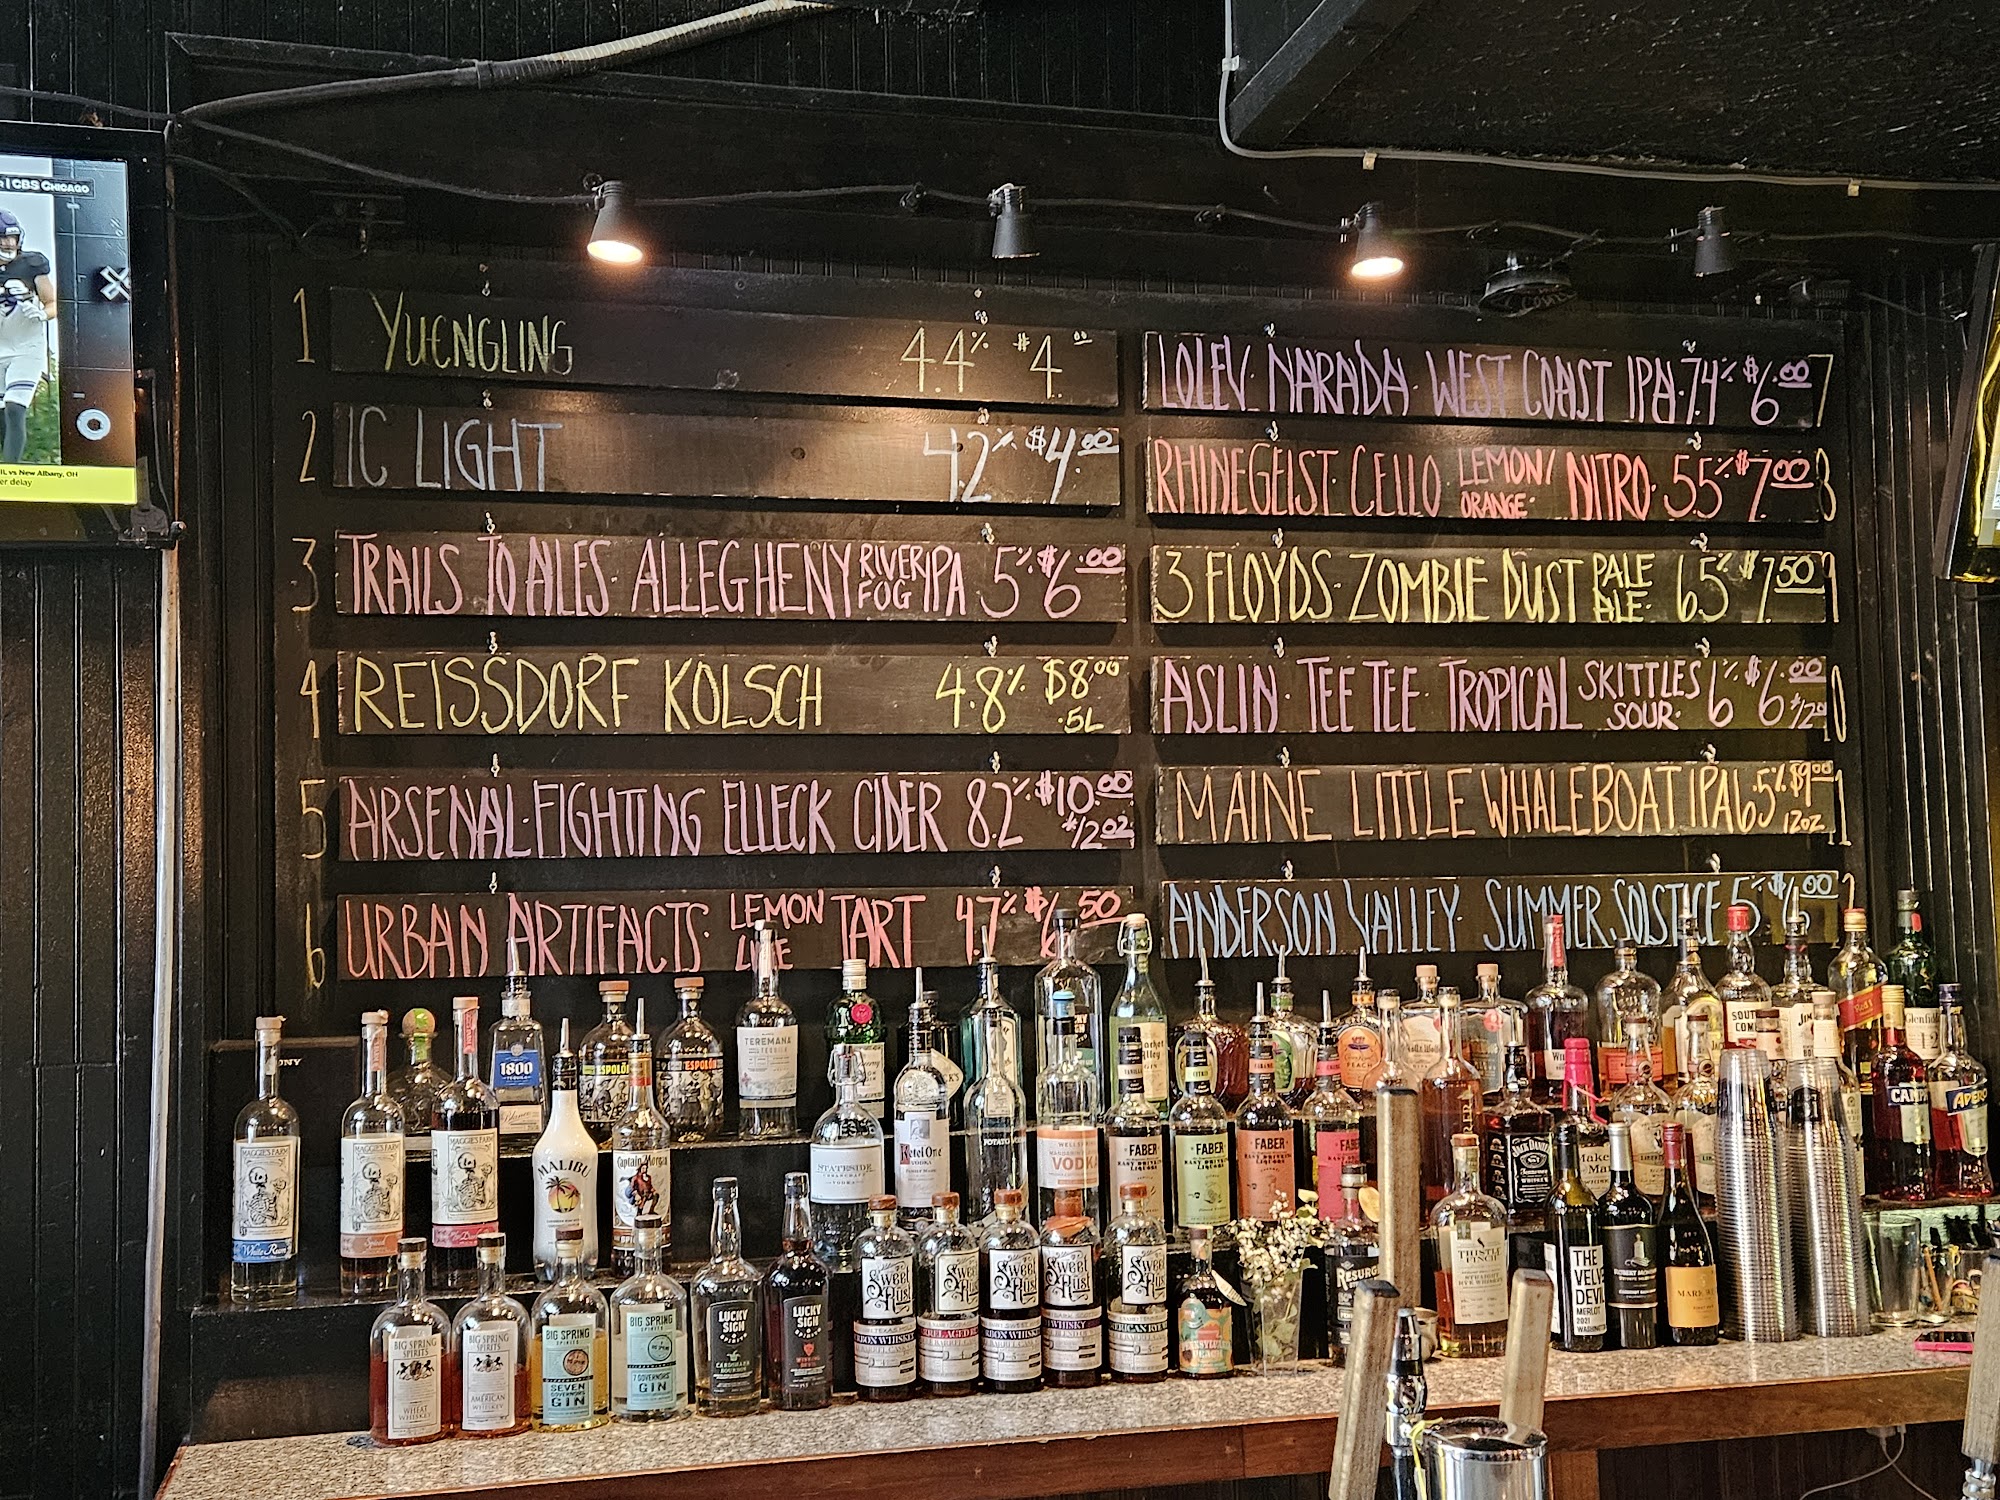 CBS CHICAGO
IL vs New Albany, OH
er delay
1 YUENGLING 4.4% $4.00
2 IC LIGHT 4.2% $4.00
3 TRAILS TO ALES. ALLEGHENY RIVER FOG IPA 5% $6.00
4 REISSDORF KOLSCH 4.8% $8.00 .5L
5 ARSENAL. FIGHTING ELLECK CIDER 8.2% $10.00 12oz
6 URBAN ARTIFACTS. LEMON LIME TART 4.7% $6.50
LOLEV. NARADA. WEST COAST IPA. 7.4% $6.00 7
RHINEGEIST. CELLO LEMON/ORANGE. NITRO. 5.5% $7.00 8
3 FLOYDS. ZOMBIE DUST PALE ALE. 6.5% $7.50 9
ASLIN. TEE TEE. TROPICAL SKITTLES SOUR. 6% $6.00
MAINE LITTLE WHALEBOAT IPA 6.5% $9.00 12oz
ANDERSON VALLEY. SUMMER SOLSTICE 5% $6.00
1800
TEQUILA
ESPOLÒN
ESPOLÒN
TEREMANA
TEQUILA
SOUTH
COM
JIM
Glenfid
MAGGIE'S FARM
White Rum
MAGGIE'S FARM
Spiced
MAGGIE'S FARM
MALIBU
Captain Morgan
STATESIDE
VODKA
Ketel One
VODKA
POTATO
VODKA
FABER
EAST DRINKING
LIQUORS
FABER
EAST DRINKING
LIQUORS
FABER
FABER
PEACH
JACK DANIEL
Tennessee
WHISKEY
Make
Mar
CAMPA
APERO
BIG SPRING
SPIRITS
WHEAT
WHISKEY
BIG SPRING
SPIRITS
AMERICAN
WHISKEY
BIG SPRING
SPIRITS
SEVEN
GOVERNORS'
GIN
BIG SPRING
SPIRITS
7 GOVERNORS'
GIN
LUCKY
SIGN
BOURBON
LUCKY
SIGN
Sweet
Rust
WHISKEY
Sweet
Rust
WHISKEY
Sweet
Rust
WHISKEY
Sweet
Rust
WHISKEY
Sweet
Rust
RESURG
THISTLE
FINCH
STRAIGHT
RYE WHISKEY
THE
VELV
DEVIL
MERLOT
2021
WASHINGT
ROBERT MOND
MARK